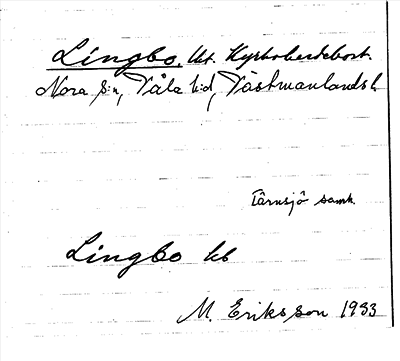 Lingbo, kt. Kyrkoherdebost.
Nora s:n, Våla h:d, Västmanlands l.
Tärnsjö samh.
Lingbo kb
M. Eriksson 1933